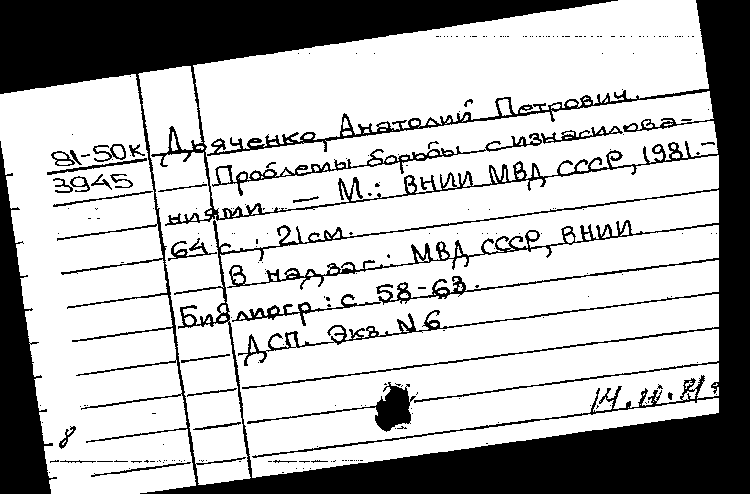 Дьяченко, Анатолий Петрович.
91-50к
3945
Проблемы борьбы с изнасилова-
ниями. — М.: ВНИИ МВД СССР, 1981.-
64 с.; 21 см.
В надзаг.: МВД СССР, ВНИИ.
Библиогр.: с. 58-63.
ДСП. Экз. N 6.
8